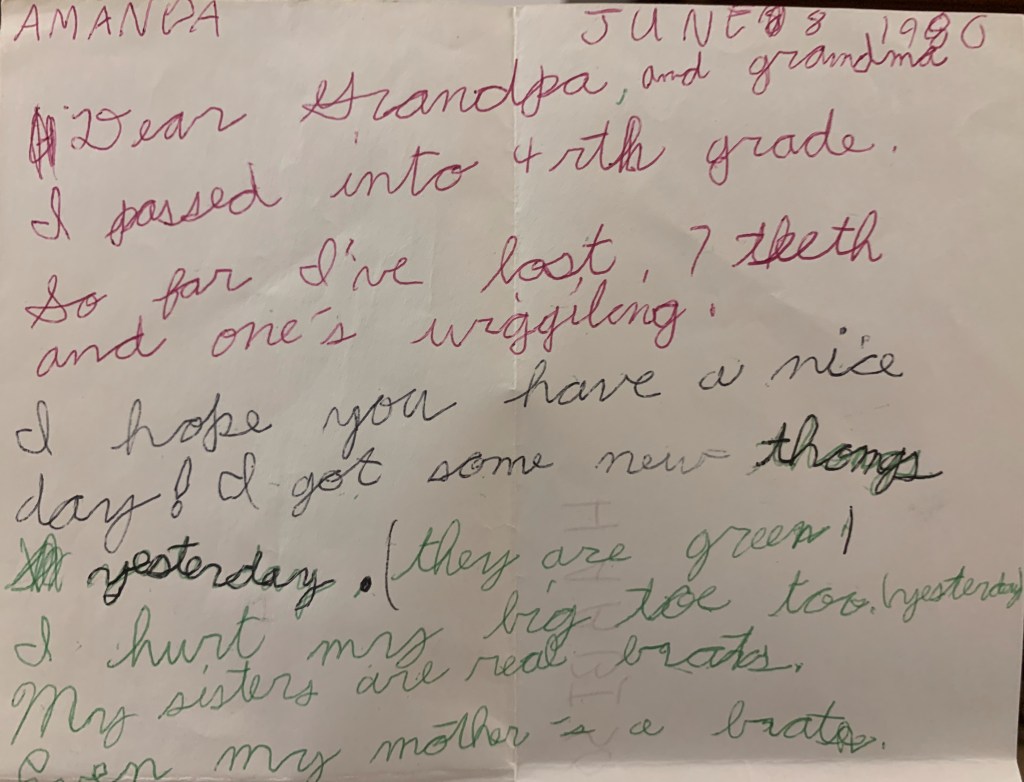 AMANDA JUNE 8 1980
Dear Grandpa, and grandma
I passed into 4rth grade.
So far I've lost, 7 teeth
and one's wiggiling.
I hope you have a nice
day! I got some new thongs
yesterday. (they are green)
I hurt my big toe too. (yesterday)
My sisters are real brats.
Even my mother's a brat.